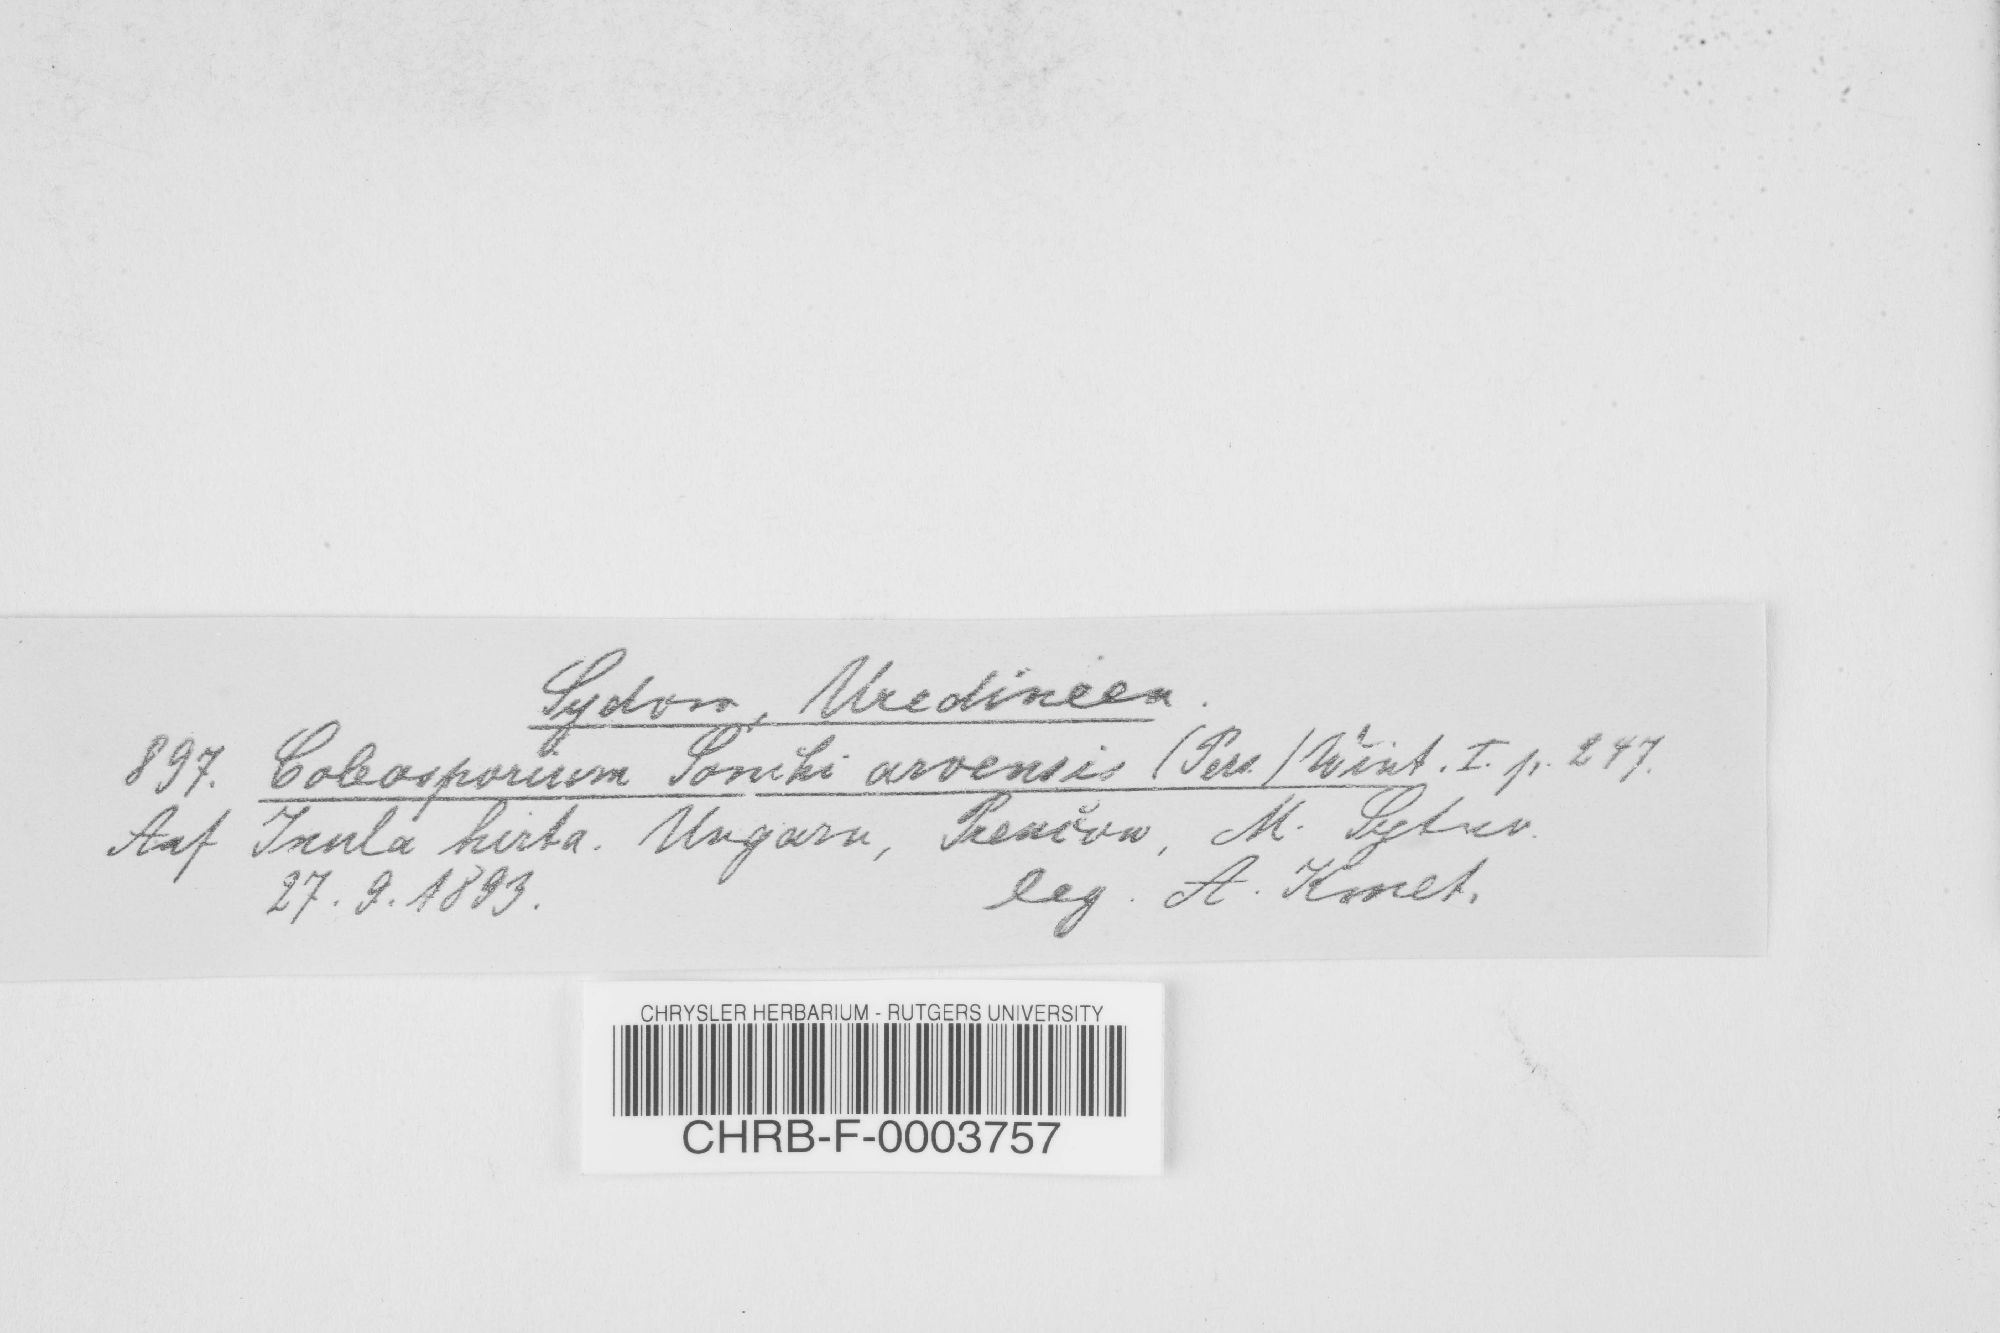 Sydow, Uredineen.
897. Coleosporium Sonchi arvensis (Pers.) Wint. I. p. 247.
Auf Inula hirta. Ungarn, Prenčow, M. Sytno.
27. 9. 1893. leg. A. Kmet.
CHRYSLER HERBARIUM - RUTGERS UNIVERSITY
CHRB-F-0003757